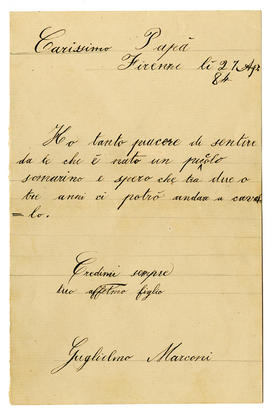 Carissimo Papà
Firenze lì 27 Apr
84
Ho tanto piacere di sentire
da te che è nato un piccolo
somarino e spero che tra due o
tre anni ci potrò andare a caval
=lo.
Credimi sempre
tuo affetmo figlio
Guglielmo Marconi